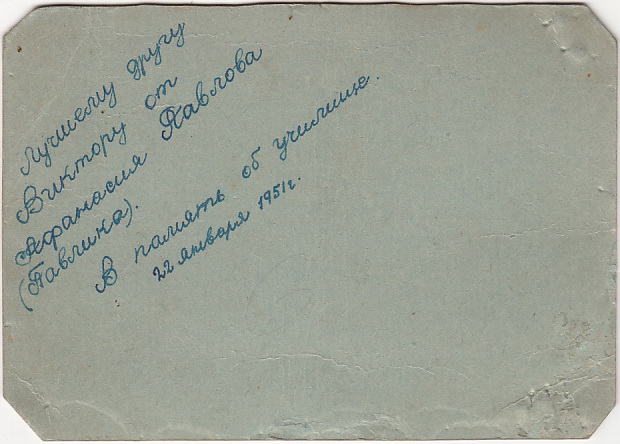 Лучшему другу
Виктору от
Афанасия Павлова
(Павлина).
В память об училище.
22 января 1951г.